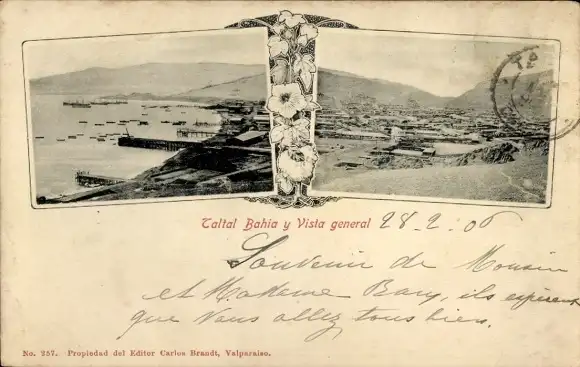 Taltal Bahia y Vista general 28-2-06
Souvenir de Monsieur
et Madame Bary, ils espèrent
que Vous allez tous bien.
No. 257. Propiedad del Editor Carlos Brandt, Valparaiso.